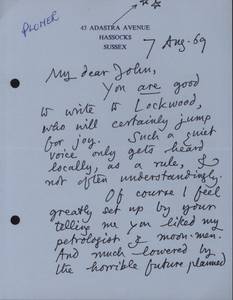 PLOMER
43 ADASTRA AVENUE
HASSOCKS
SUSSEX
7 Aug. 69
My dear John,
You are good
to write to Lockwood,
who will certainly jump
for joy. Such a quiet
voice only gets heard
locally, as a rule, &
not often understandingly.
Of course I feel
greatly set up by your
telling me you liked my
petrologist & moon-men.
And much lowered by
the horrible future planned